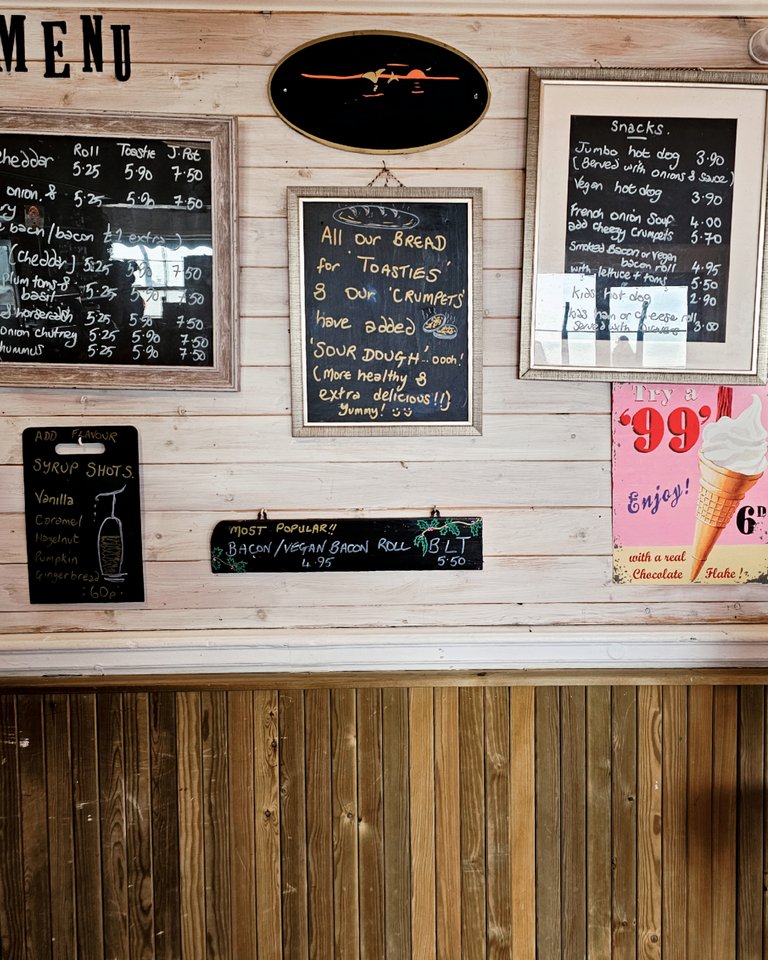 MENU
cheddar Roll Toastie J.Pot
5.25 5.90 7.50
onion & 5.25 5.90 7.50
bacon/bacon £1 extra)
(cheddar) 5.25 5.90 7.50
plum toms & basil 5.25 5.90 7.50
horseradish 5.25 5.90 7.50
onion chutney 5.25 5.90 7.50
hummus 5.25 5.90 7.50
All our BREAD
for 'TOASTIES'
& our 'CRUMPETS'
have added
'SOUR DOUGH'... oooh!
(More healthy &
extra delicious!!)
Yummy!
Snacks.
Jumbo hot dog 3.90
(Served with onions & sauce)
Vegan hot dog 3.90
French onion Soup 4.00
add cheesy crumpets 5.70
Smoked Bacon or Vegan
bacon roll 4.95
with lettuce + toms 5.50
Kids hot dog 2.90
kids ham or cheese roll
served with 3.00
ADD FLAVOUR
SYRUP SHOTS.
Vanilla
Caramel
Hazelnut
Pumpkin
Gingerbread
60p.
MOST POPULAR!!
BACON/VEGAN BACON ROLL BLT
4.95 5.50
Try a
'99'
Enjoy!
6D
with a real
Chocolate Flake!